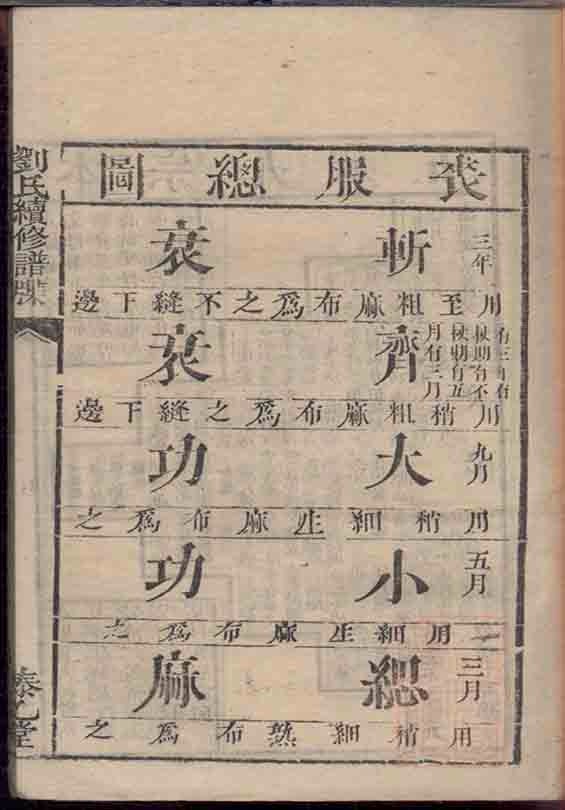 喪服總圖
三年
斬衰
用至粗麻布爲之不縫下邊
有三年有
杖期有不
杖期有五
月有三月
齊衰
用稍粗麻布爲之縫下邊
九月
大功
用稍細生麻布爲之
五月
小功
用細生麻布爲之
三月
緦麻
用稍細熟布爲之
劉氏續修譜牒
堂